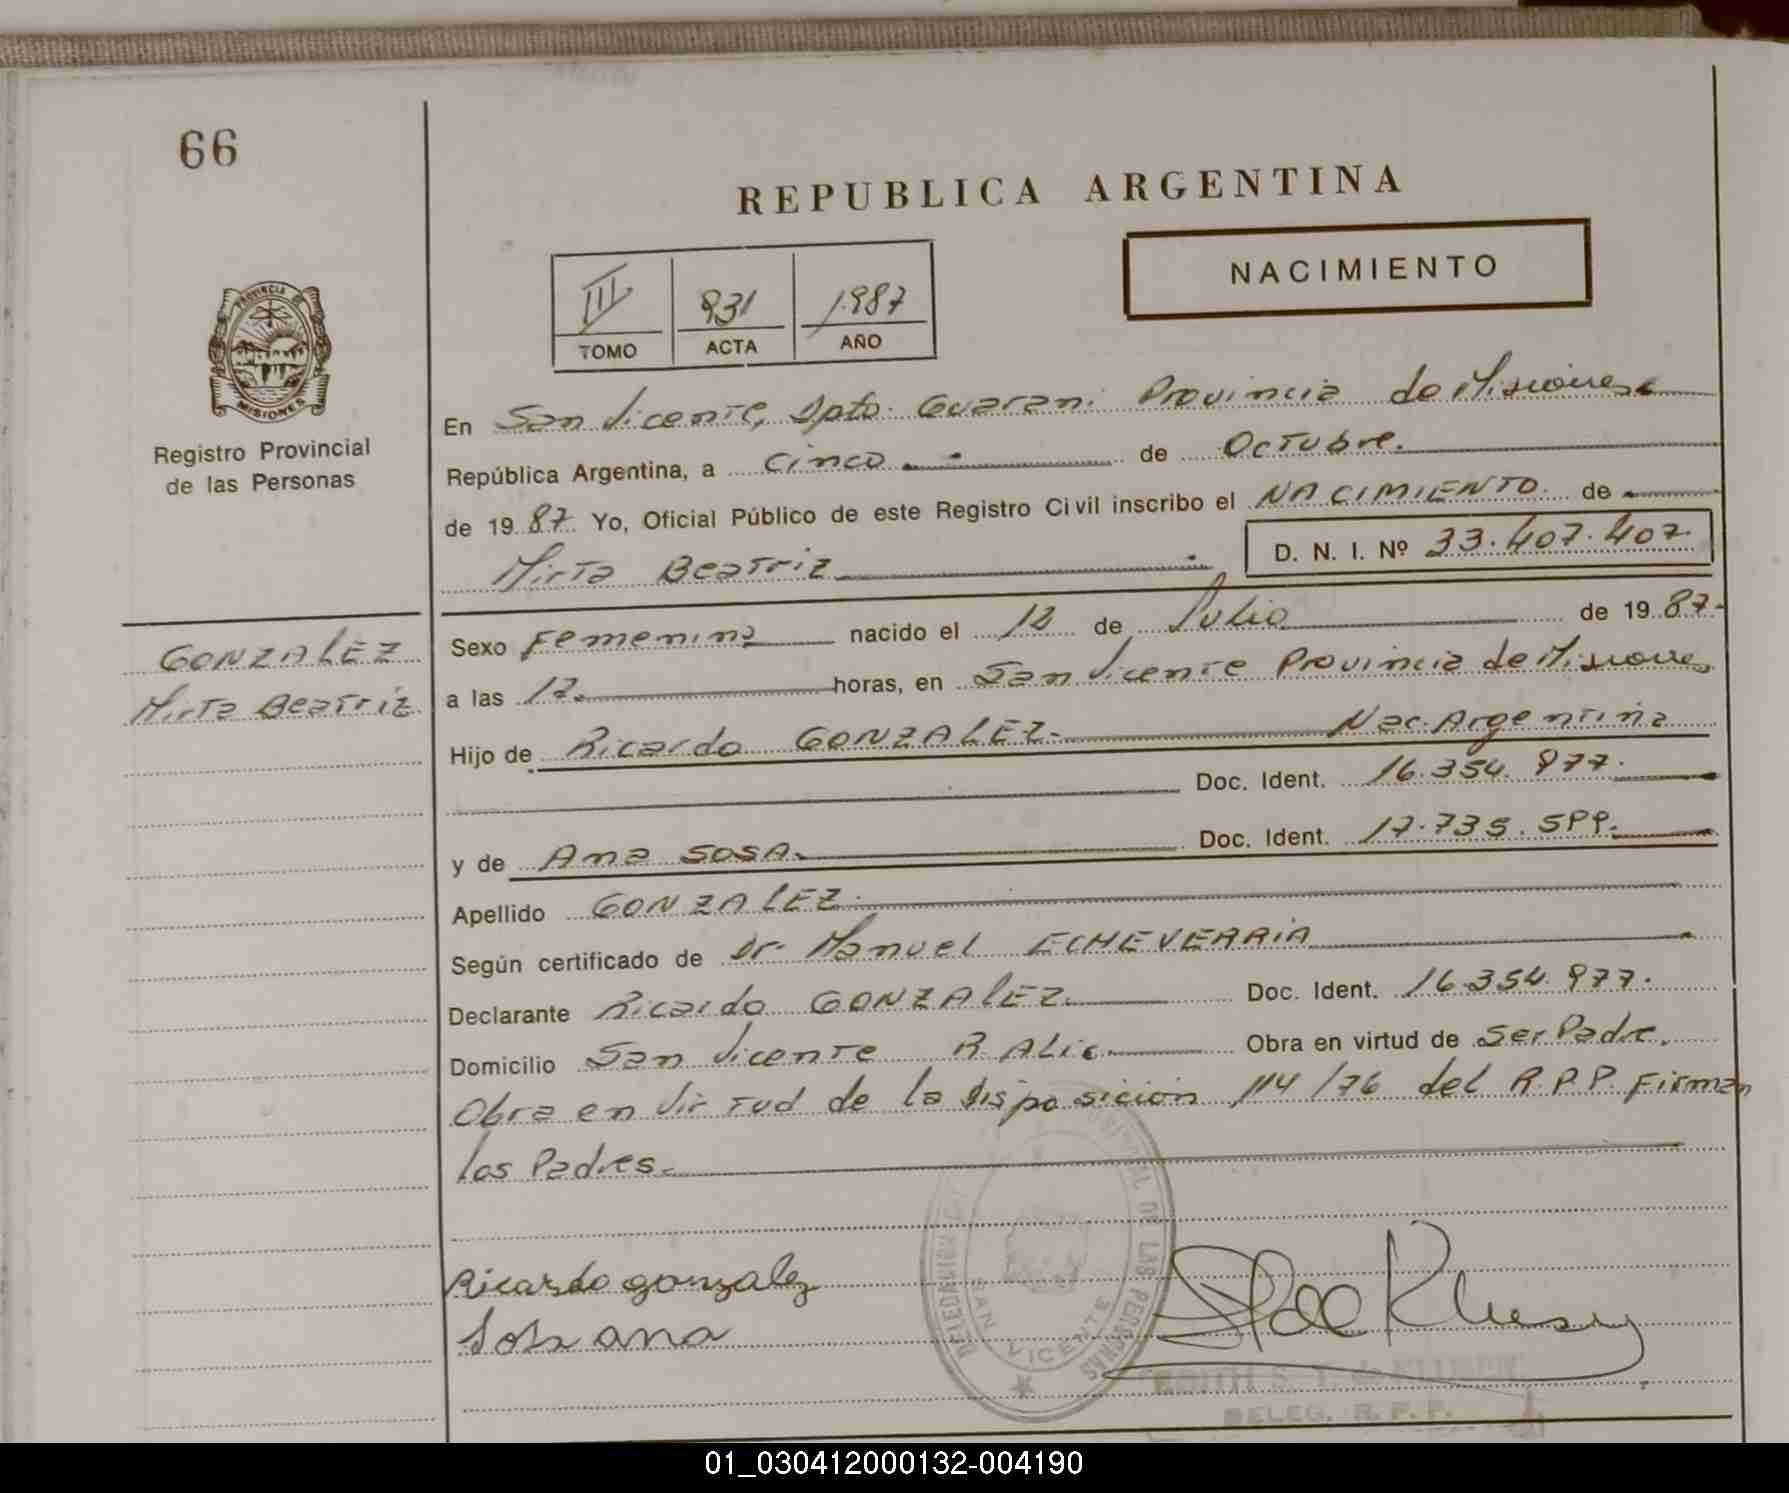 66
REPUBLICA ARGENTINA
NACIMIENTO
III 931 1987
TOMO ACTA AÑO
PROVINCIA DE
MISIONES
Registro Provincial
de las Personas
En San Vicente, Dpto. Guarani Provincia de Misiones
República Argentina, a Cinco de Octubre.
de 19 87 Yo, Oficial Público de este Registro Civil inscribo el NACIMIENTO de
Mirta Beatriz D. N. I. Nº 33.407.407.
GONZALEZ
Mirta Beatriz
Sexo Femenino nacido el 12 de Julio de 19 87-
a las 12. horas, en San Vicente Provincia de Misiones
Hijo de Ricardo GONZALEZ- Nac. Argentina
Doc. Ident. 16.354.977.
y de Ana SOSA. Doc. Ident. 17.735.599.
Apellido GONZALEZ.
Según certificado de Dr. Manuel ECHEVERRIA
Declarante Ricardo GONZALEZ. Doc. Ident. 16.354.977.
Domicilio San Vicente Obra en virtud de Ser Padre.
Obra en Virtud de la Disposición 114/76 del R.P.P. Firman
los Padres.
Ricardo gonzalez
ana
DELEGACION DE LAS PERSONAS
SAN VICENTE
EDITH S. T. de
DELEG. R. P. P.
01_030412000132-004190